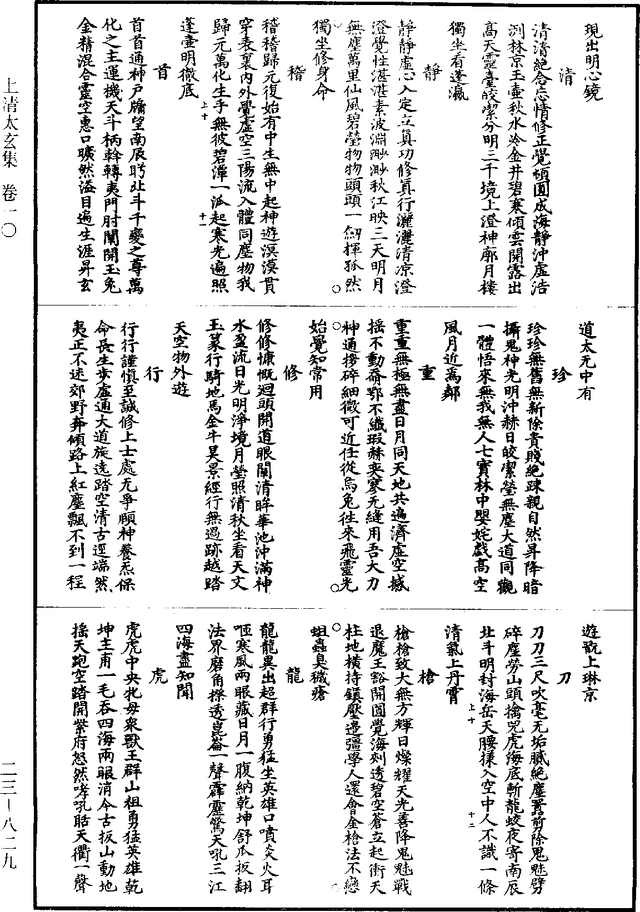 現出明心鏡
清
清清絕念忘情修正覺頓圓成海靜沖虛浩
渕林京玉壷秋水冷金井碧寒傾雲開露出
高天靈臺皎潔分明三千境上澄神廓月樓
獨坐看蓬瀛
靜
靜靜虛心入定立真功修真行灑灑清凉澄
澄覺性湛湛素波淵渺渺秋江映三天明月
無塵萬里仙風碧瑩物物頭頭一劒揮孤然
獨坐修身命
稽
稽稽歸元復始有中生無中起神遊溟漠貫
穿表裏內外覺虛空三陽流入體同塵物我
歸元萬化生乎無彼碧潭一派起寒光遍照
蓬壷明徹底
上十
十一
首
首首通神戸牖望南辰眄北斗千變之尊萬
化之主運機天斗柄斡轉夷門肘闡開玉兔
金精混合靈空惠口曠然溢目遍生涯昇玄
道太无中有
珍
珍珍無舊無新除貴賤絕踈親自然昇降暗
攝鬼神光明沖赫日皎潔瑩無塵大道同觀
一體悟來無我無人七寳林中嬰姹戲高空
風月近為鄰
重
重重無極無盡日月同天地共遍濟虛空撼
摇不動喬鄂不纖瑕赫奕寥无縫用吾大力
神通撈碎細微可近任從烏兔往來飛靈光
始覺知常用
修
修修慷慨迴頭開道眼闢清眸華池沖滿神
水盈流日光明淨境月瑩照清秋坐看天文
玉篆行騎地馬金牛昊景經行無過跡越踏
天空物外遊
行
行行謹慎至誠修上士處无爭頤神養炁保
命長生步虛通大道旋遶踏空清古逕端然
夷正不迷郊野奔傾路上紅塵飄不到一程
遊翫上琳京
刀
刀刀三尺吹毫无垢膩絕塵囂剪除鬼魅劈
碎塵勞山頭擒咒虎海底斬龍蛟夜寄南辰
北斗明封海岳天腰撲入空中人不識一條
清氣上丹霄
上十
十二
槍
槍槍致大無方輝日燦耀天光善降鬼魅戰
退魔王豁開圓覺海刺透碧空蒼立起衝天
柱地横持鎮壓邊彊學人還會金槍法不戀
蛆蟲臭穢瘡
龍
龍龍異出超群行勇猛坐英雄口噴炎火耳
咂寒風兩眼藏日月一腹納乾坤舒爪扳翻
法界磨角摖透崑崙一聲霹靂驚天吼三江
四海盡知聞
虎
虎虎中央牝母衆獸王群山祖勇猛英雄乾
坤主甫一毛吞四海兩眼消今古扳山動地
摇天跑空踏開紫府怒然哮吼聒天衢一聲
上清太玄集 卷一〇
二三－八二九